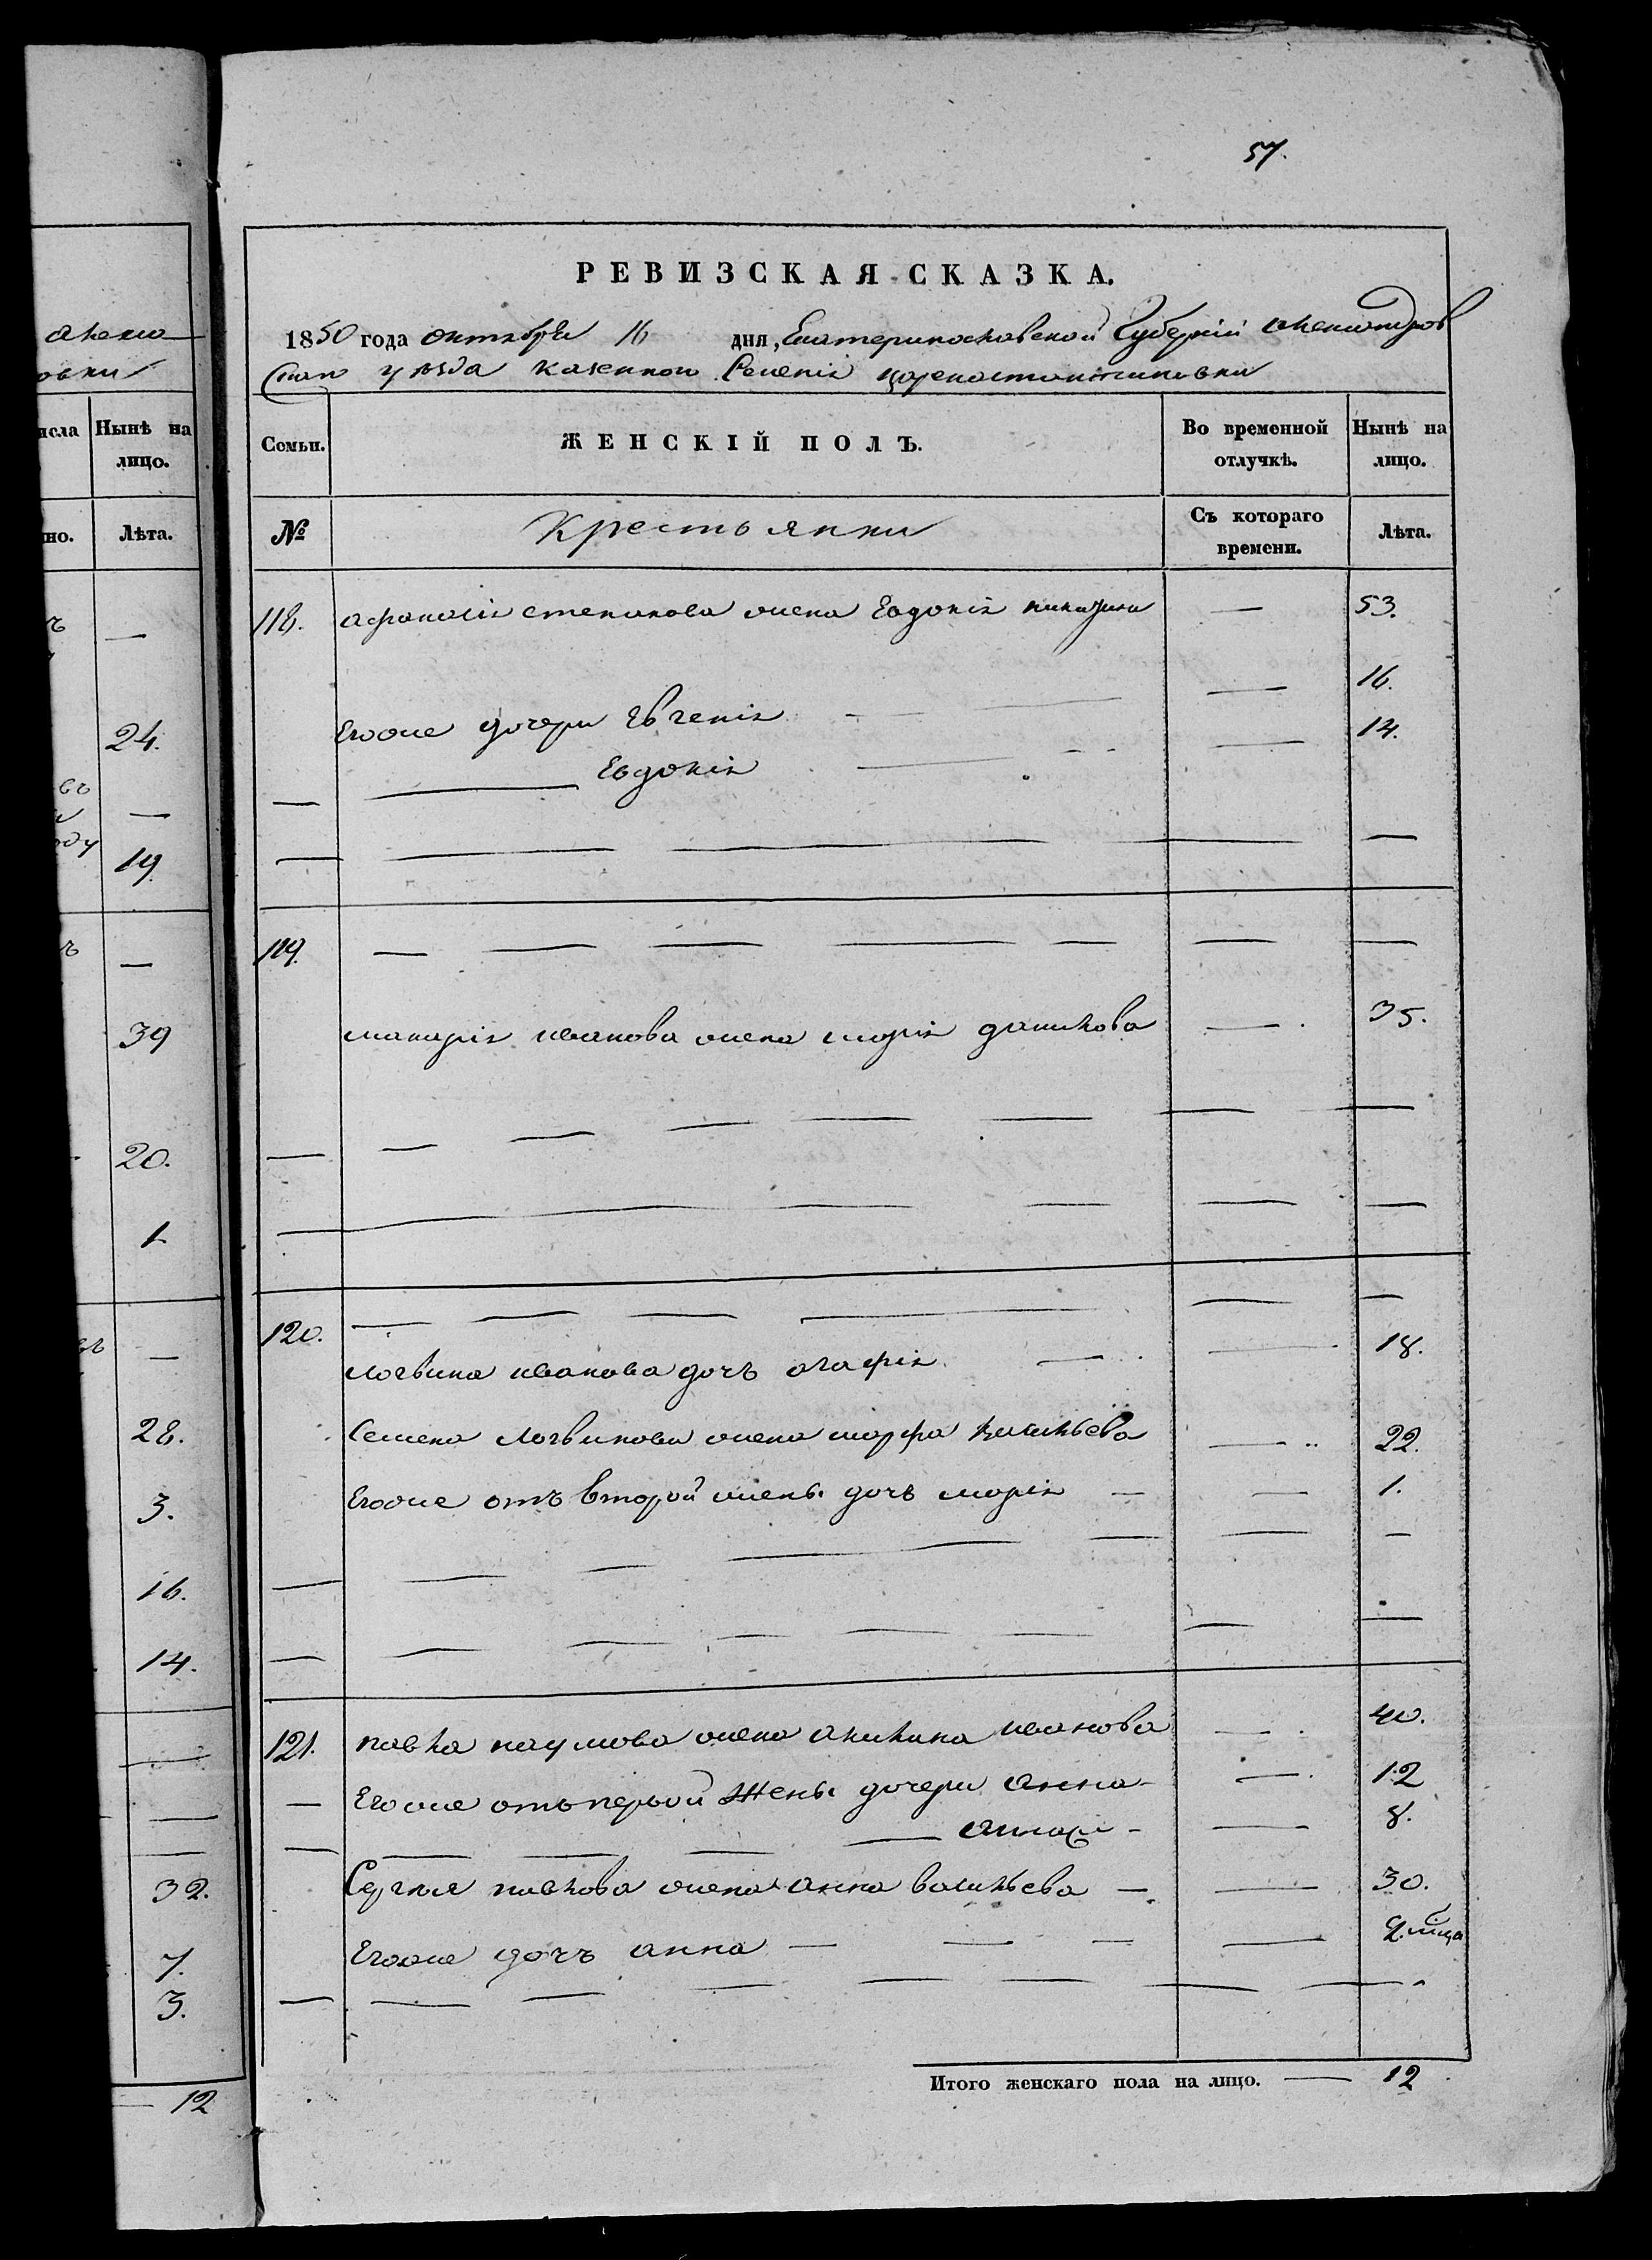 57.
алекса
овки
исла Нынѣ на лицо.
но. Лѣта.
24.
19.
39
20.
1
28.
3.
16.
14.
32.
7.
3.
12
РЕВИЗСКАЯ СКАЗКА.
1850 года октября 16 дня, Екатеринославской Губерніи Александров
ска уѣзда казенного Селенія Цареконстантиновки
Семьи. ЖЕНСКІЙ ПОЛЪ. Во временной отлучкѣ. Нынѣ на лицо.
№ Крестьянки Съ котораго времени. Лѣта.
118. афанасія степанова жена Евдокія — 53.
Егоже дочери Евгенія — 16.
— Евдокія — 14.
119. — — — — — — —
макарія иванова жена марія данилова — 35.
120. — — — — — —
логвина иванова дочь агафія — — 18.
Семена логвинова жена марфа Васильева — 22.
Егоже отъ второй жены дочь марія — — 1.
121. павла наумова жена акилина иванова — 40.
— Егоже отъ первой жены дочери анна — — 12
— — — — — — — 8.
Сергея павлова жена анна васильева — — 30.
Егоже дочь анна — — — —
Итого женскаго пола на лицо. — 12